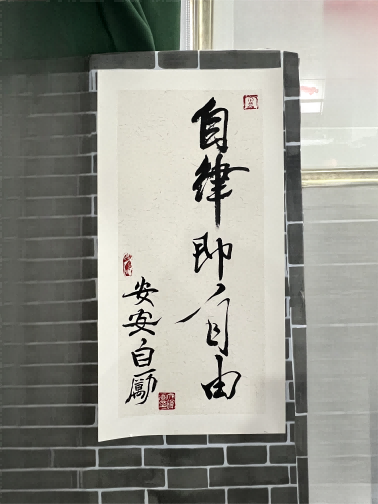 自律即自由
安安自勵